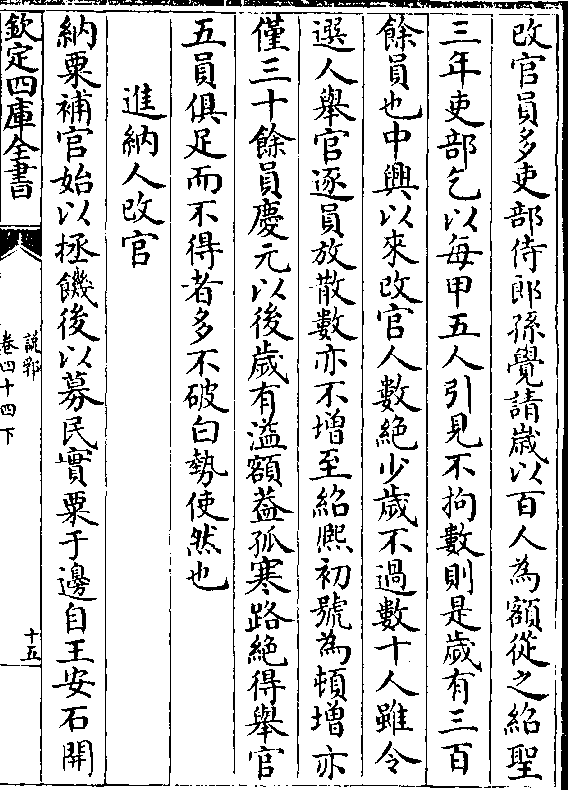 改官員多吏部侍郎孫覺請歲以百人為額從之紹聖
三年吏部乞以每甲五人引見不拘數則是歲有三百
餘員也中興以來改官人數絶少歲不過數十人雖令
選人舉官逐員放散數亦不增至紹熈初號為頓增亦
僅三十餘員慶元以後歲有溢額葢孤寒路絶得舉官
五員俱足而不得者多不破白勢使然也
進納人改官
納粟補官始以拯饑後以募民實粟于邊自王安石開
欽定四庫全書
說郛
卷四十四下
十五